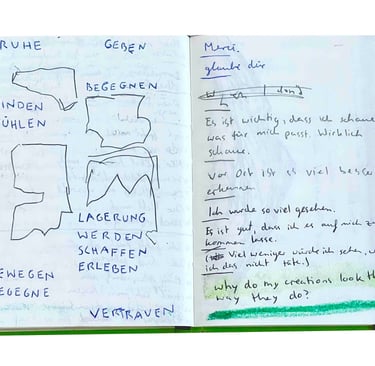 RUHE
GEBEN
BEGEGNEN
INDEN
ÜHLEN
LAGERUNG
WERDEN
SCHAFFEN
ERLEBEN
EWEGEN
EGEGNE
VERTRAUEN
Merci.
glaube dir
Es ist wichtig, dass ich schaue
was für mich passt. Wirklich
schaue.
Vor Ort ist es viel besser
erkennen
Ich wurde so viel gesehen.
Es ist gut, dass ich es auf mich zu
kommen lasse.
(Viel weniger würde ich sehen, w
ich das nicht täte.)
why do my creations look the
way they do?